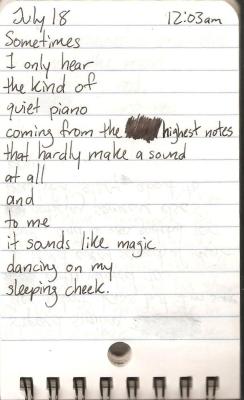 July 18 12:03am
Sometimes
I only hear
the kind of
quiet piano
coming from the highest notes
that hardly make a sound
at all
and
to me
it sounds like magic
dancing on my
sleeping cheek.